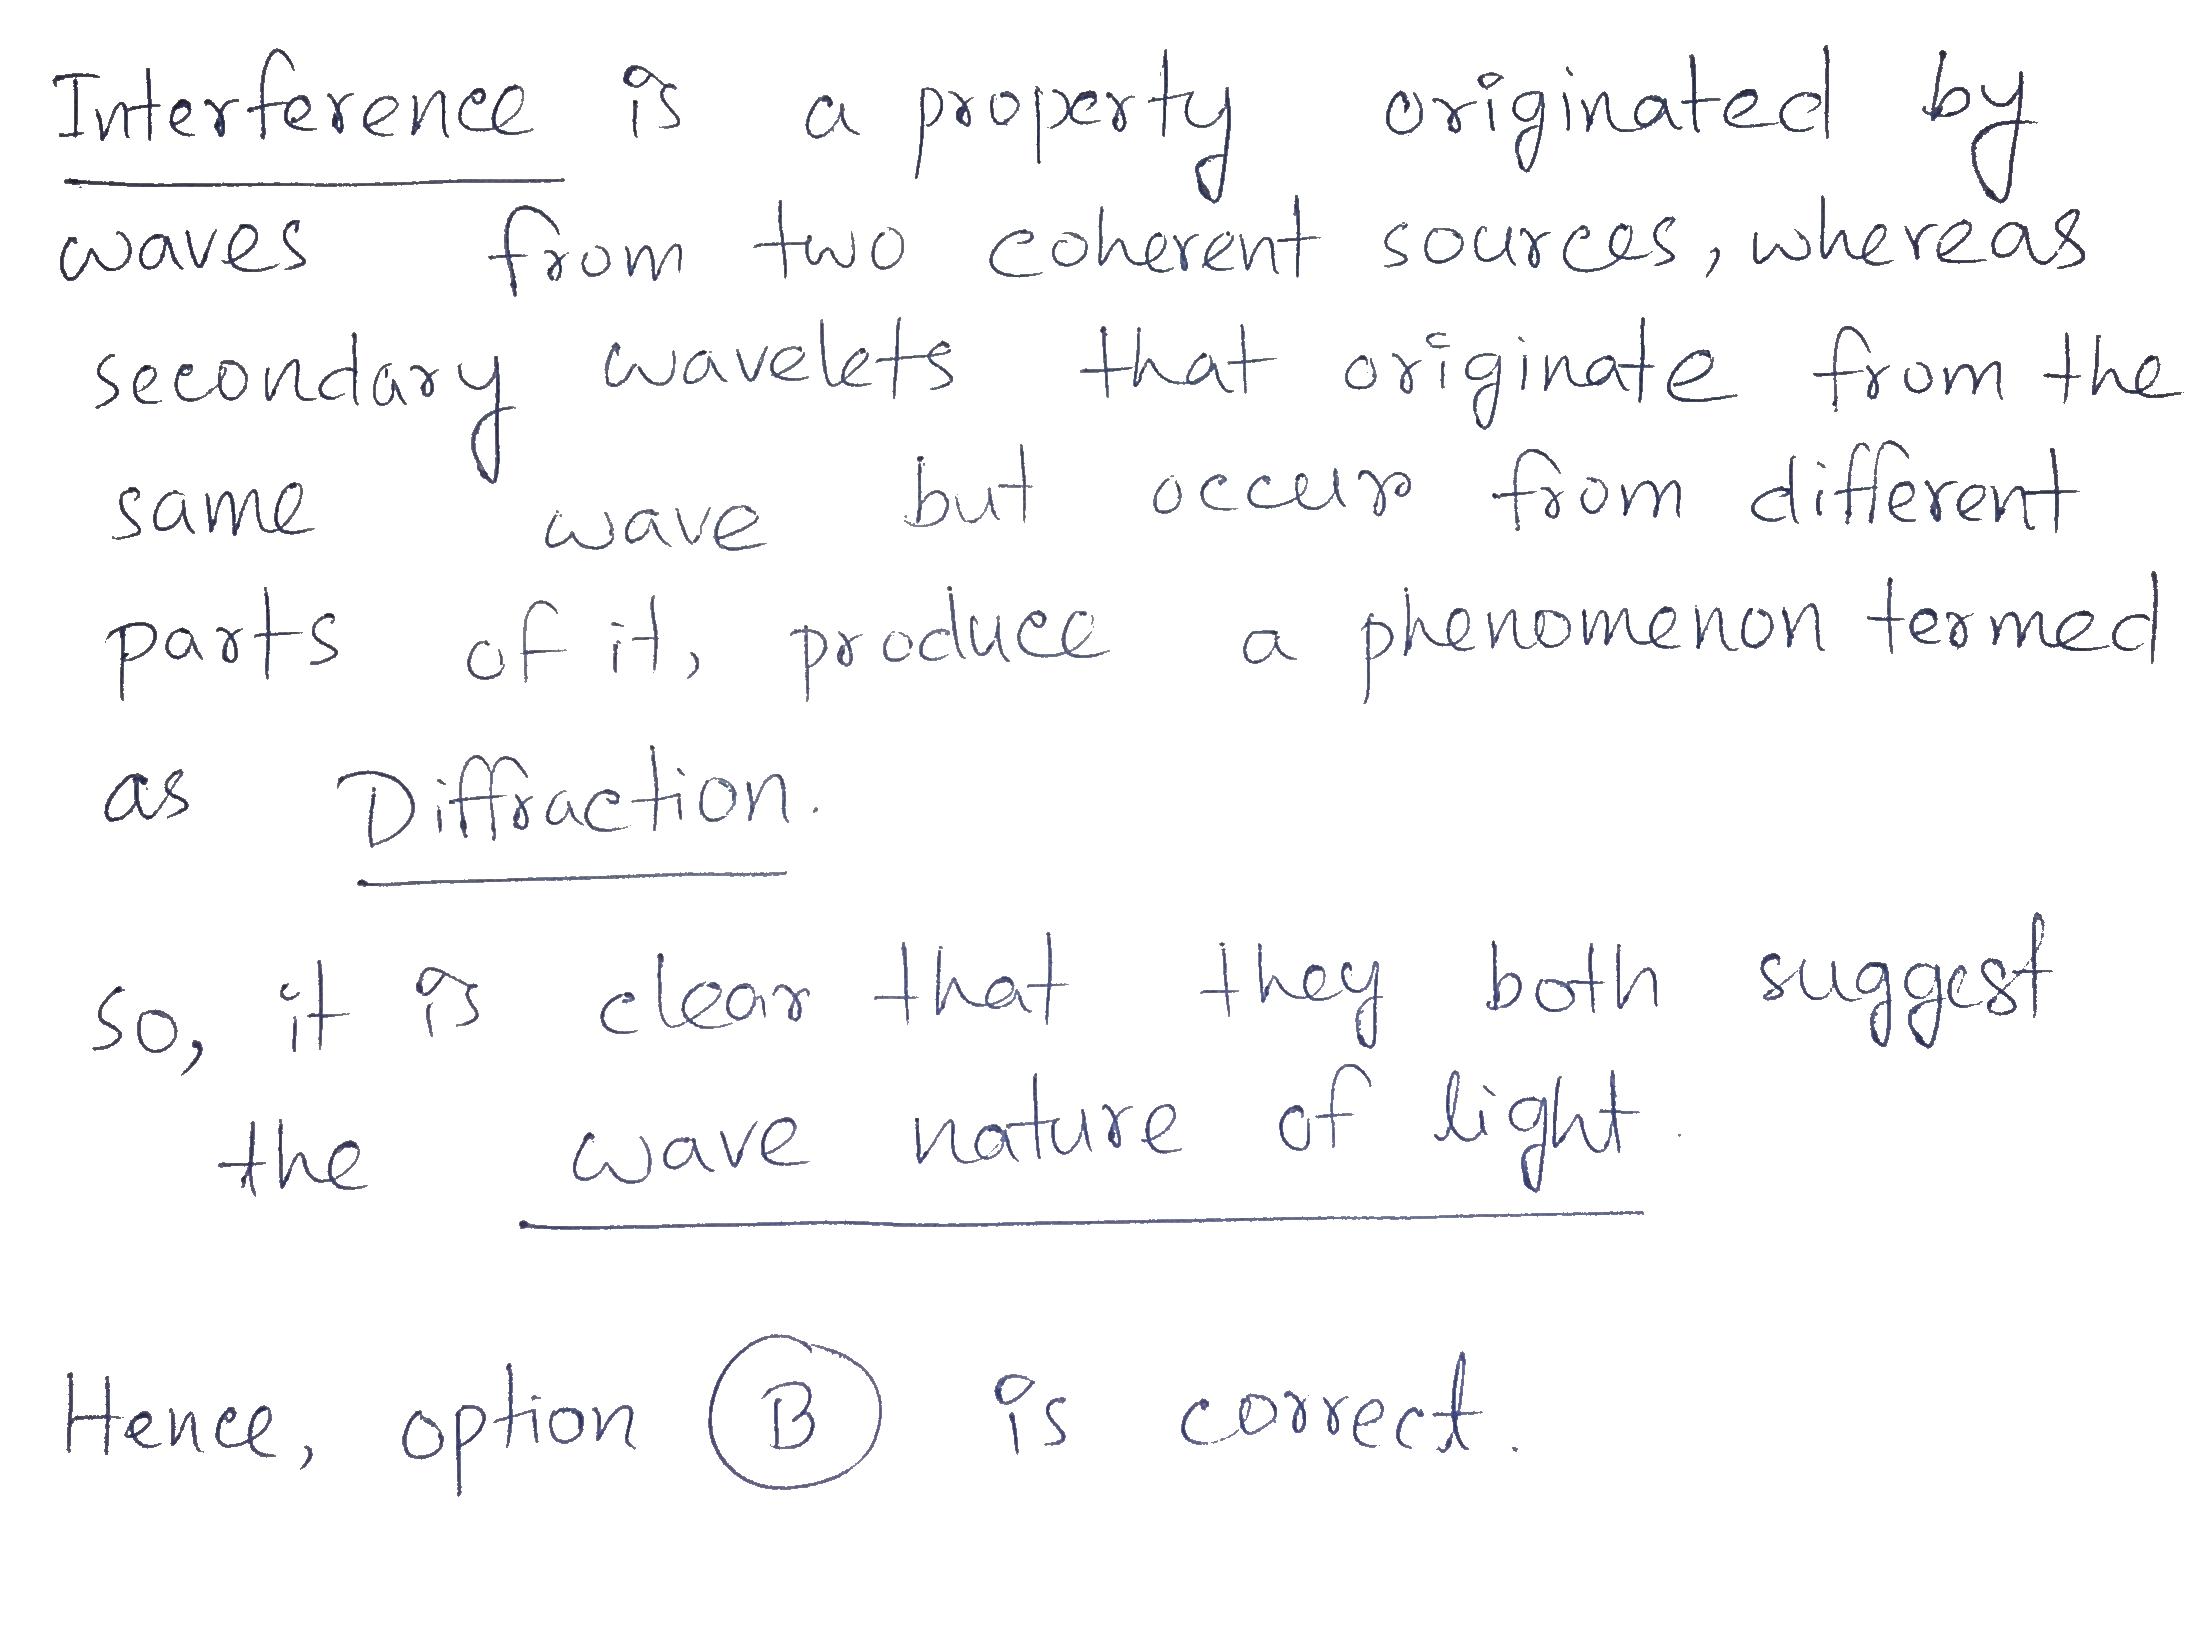 Interference is a property originated by
waves from two coherent sources, whereas
secondary wavelets that originate from the
same wave but occur from different
parts of it, produce a phenomenon termed
as Diffraction.
so, it is clear that they both suggest
the wave nature of light.
Hence, option B is correct.